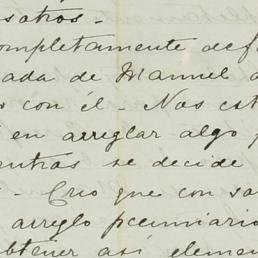 sotros.-
completamente desf
ada de Manuel a
r con él - Nos est
en arreglar algo p
entras se decide
- Creo que con sa
arreglo pecuniario
obtener así elemen